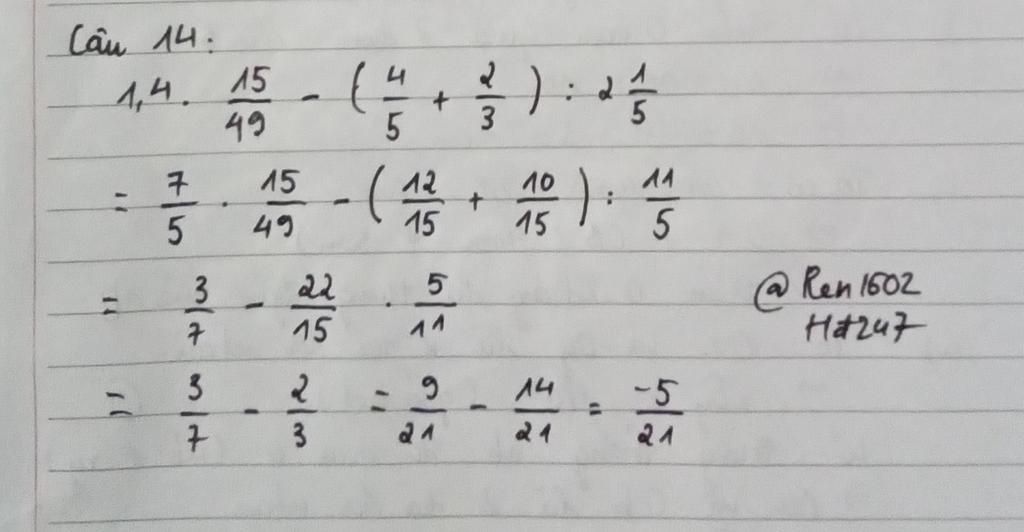 Câu 14:
1,4 . 15/49 - (4/5 + 2/3) : 2 1/5
= 7/5 . 15/49 - (12/15 + 10/15) : 11/5
= 3/7 - 22/15 . 5/11
@Ren1602
H#247
= 3/7 - 2/3 = 9/21 - 14/21 = -5/21